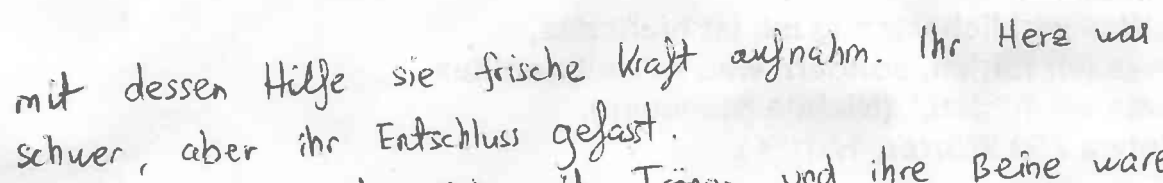 mit dessen Hilfe sie frische Kraft aufnahm. Ihr Herz war
schwer, aber ihr Entschluss gefasst.
und ihre Beine